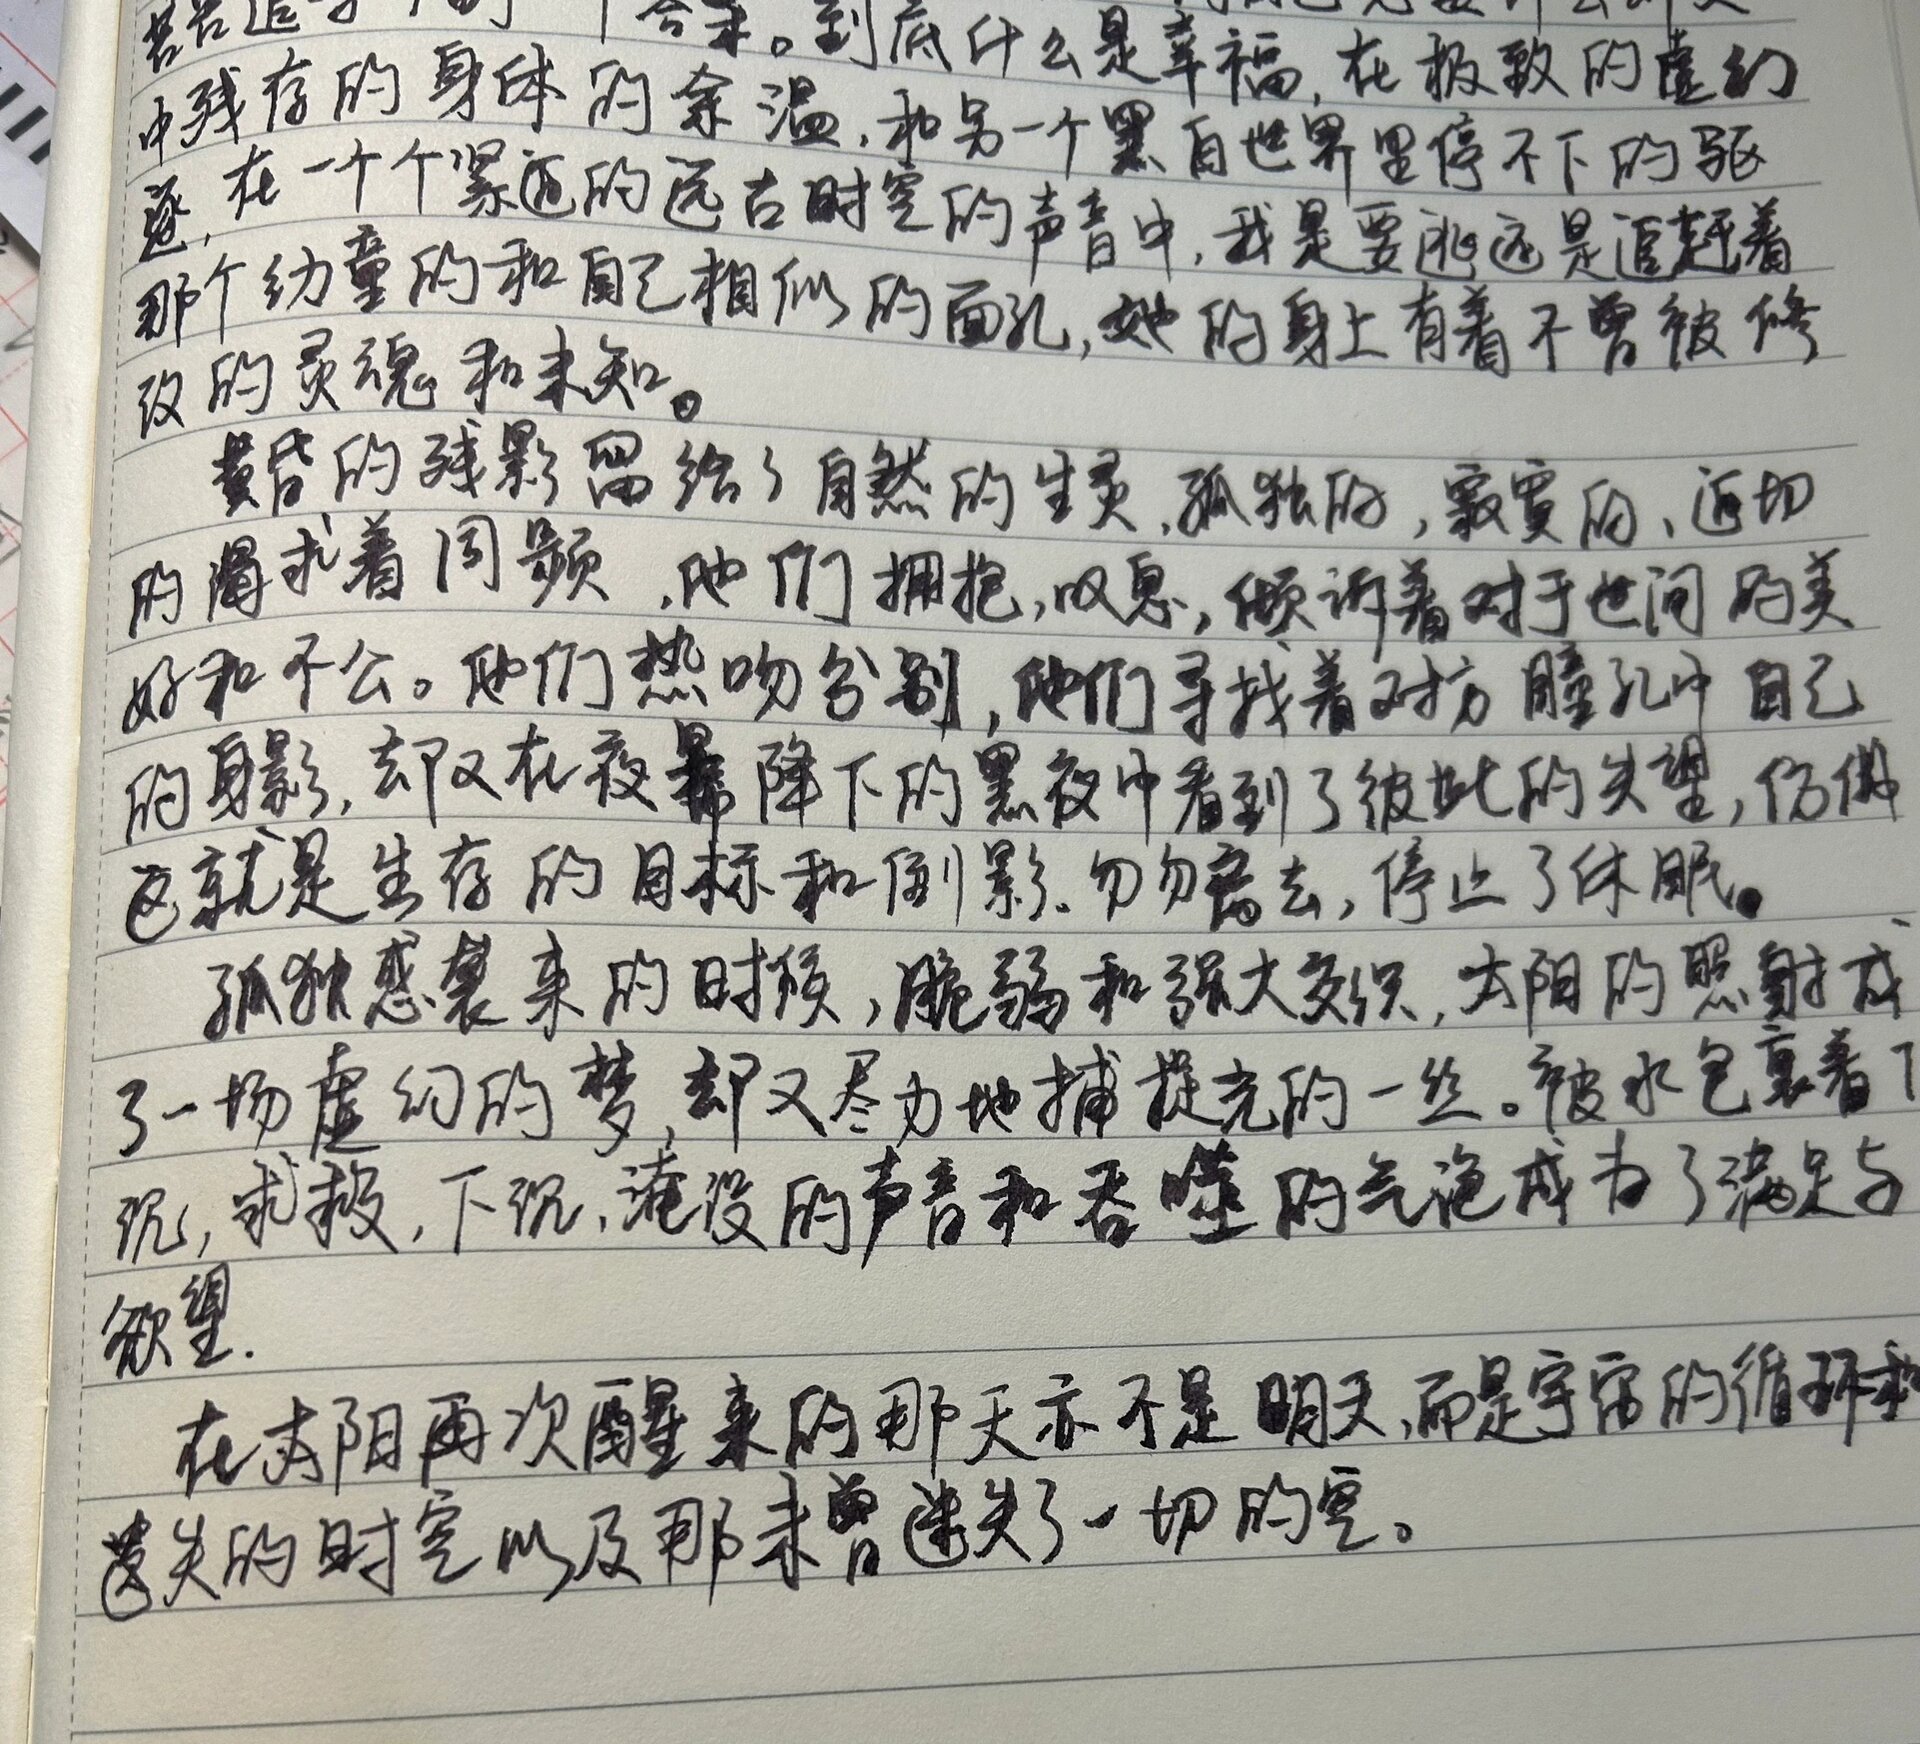 合来。到底什么是幸福，在极致的虚幻
中残存的身体的余温，和另一个黑白世界里停不下的驱
逐，在一个个紧迫的远古时空的声音中，我是要逃还是追赶着
那个幼童的和自己相似的面孔，她的身上有着不曾被修
改的灵魂和未知。
黄昏的残影留给了自然的生灵，孤独的，寂寞的、迫切
的渴求着同频，他们拥抱，叹息，倾诉着对于世间的美
好和不公。他们热吻分别，他们寻找着对方瞳孔中自己
的身影，却又在夜幕降下的黑夜中看到了彼此的失望，仿佛
这就是生存的目标和倒影、匆匆离去，停止了休眠。
孤独感袭来的时候，脆弱和强大交织，太阳的照射成
了一场虚幻的梦，却又尽力地捕捉光的一丝。被水包裹着下
沉，求救，下沉，淹没的声音和吞噬的气泡成为了满足与
欲望.
在太阳再次醒来的那天亦不是明天，而是宇宙的循环和
遗失的时空以及那未曾迷失了一切的空。